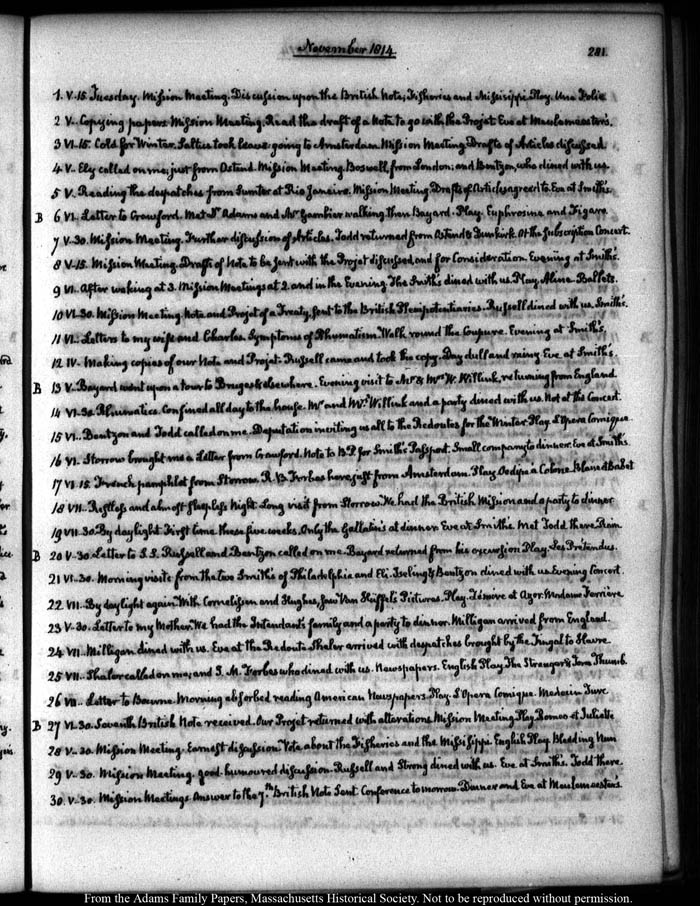 November 1814.
281.
1. V-15. Tuesday. Mission Meeting. Discussion upon the British Note; Fisheries and Missisippi Play. Une Folie
2 V.. Copying papers Mission Meeting. Read the draft of a Note to go with the Projet Eve at Meulemeester's.
3 VI.15. Cold for Winter. Saltus took leave going to Amsterdam. Mission Meeting Drafts of Articles discussed
4 V.. Ely called on me, just from Ostend. Mission Meeting. Boswell, from London; and Bentzon, who dined with us.
5 V. Reading the despatches from Sumter at Rio Janeiro. Mission Meeting Drafts of Articles agreed to. Eve at Smiths
B 6 VI.. Letter to Crawford. Met Dr. Adams and Mr Gambier walking then Bayard. Play. Euphrosine and Figaro
7 V.30. Mission Meeting. Further discussion of Articles. Todd returned from Ostend & Dunkirk. At the Subscription Concert.
8 V.15. Mission Meeting. Draft of Note to be sent with the Projet discussed, and for consideration. Evening at Smith's.
9 VI. After waking at 3. Mission Meetings at 2. and in the Evening. The Smiths dined with us. Play, Aline. Ballets.
10 VI.30. Mission Meeting Note and Projet of a Treaty, sent to the British Plenipotentiaries. Russell dined with us. Smith's.
11 VI.. Letters to my wife and Charles. Symptoms of Rhumatism. Walk round the Coupure. Evening at Smith's,
12 IV. Making copies of our Note and Projet. Russell came and took his copy. Day dull and rainy. Eve at Smith's
B 13 V.. Bayard went upon a tour to Bruges & elsewhere. Evening visit to Mr & Mrs. W. Willink, returning from England.
14 VI.30. Rheumatics. Confined all day to the house. Mr and Mrs. Willink and a party dined with us. Not at the Concert.
15 VI.. Bentzon and Todd called on me. Deputation inviting us all to the Redoutes for the Winter. Play. L'Opera Comique.
16 VI. Storrow brought me a Letter from Crawford. Note to B.P. for Smith's Passport. Small company to dinner. Eve at Smiths.
17 VI.15. French pamphlet from Storrow. R. B. Forbes here, just from Amsterdam. Play Oedipe a Colone. Blaise & Babet
18 VII.. Restless and almost sleepless Night. Long visit from Storrow. We had the British Mission and a party to dinner
19 VII.30 By daylight first time these five weeks. Only the Gallatin's at dinner. Eve at Smiths Met Todd there. Rain
B 20 V-30. Letter to J. S. Russell and Bentzon called on me. Bayard returned from his excursion. Play. Les Prétendus.
21 VI.30. Morning visits from the two Smith's of Philadelphia and Eli. Iseling & Bentzon dined with us. Evening Concert.
22 VII.. By daylight again. With Cornelissen and Hughes, saw Van Huffel's Pictures. Play. Zémire et Azor. Madame Ferrière
23 V-30. Letter to my Mother. We had the Intendant's family and a party to dinner. Milligan arrived from England.
24 VII. Milligan dined with us. Eve at the Redoute. Shaler arrived with despatches brought by the Fingal to Havre.
25 VII.. Shaler called on me; and J. M. Forbes who dined with us. Newspapers. English Play. The Stranger & Tom Thumb.
26 VII.. Letter to Bourne. Morning absorbed reading American Newspapers. Play. L'Opera Comique. Medecin Turc
B 27 VI.30. Seventh British Note received. Our Projet returned with alterations. Mission Meeting. Play. Romeo et Juliette
28 V.-30. Mission Meeting. Earnest discussion. Vote about the Fisheries and the Missisippi. English Play. Bleeding Nun
29 V-30. Mission Meeting. good-humoured discussion. Russell and Strong dined with us. Eve at Smith's. Todd there.
30. V-30. Mission Meetings. Answer to the 7.th British Note Sent. Conference tomorrow. Dinner and Eve at Meulemeester's.
From the Adams Family Papers, Massachusetts Historical Society. Not to be reproduced without permission.